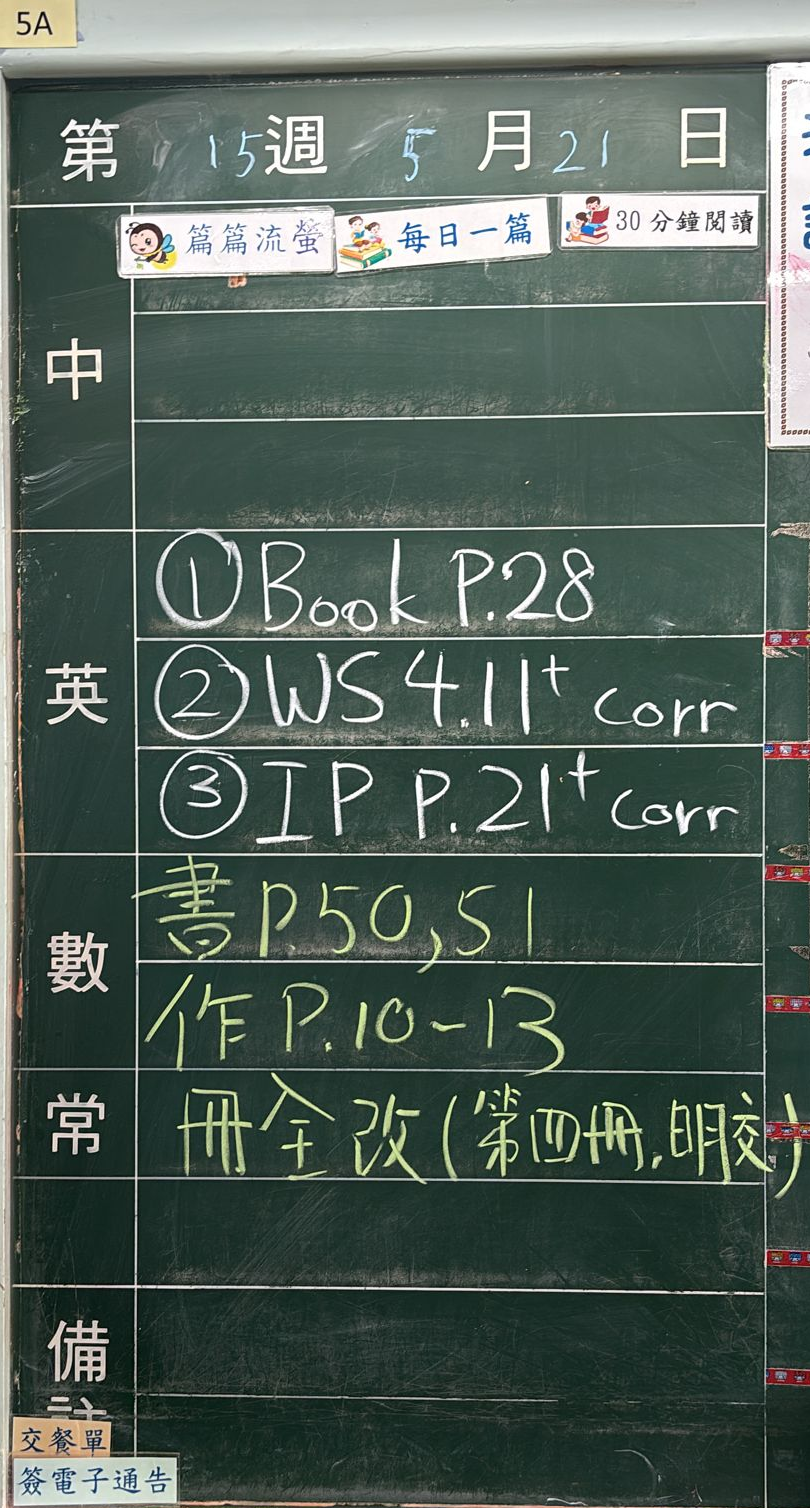 5A
第15週 5月21日
篇篇流螢 每日一篇 30分鐘閱讀
中
英
①Book P.28
②WS 4.11+ corr
③IP P.21+ corr
數
書P.50,51
作P.10-13
常
冊全改(第四冊,明交)
備註
交餐單
簽電子通告